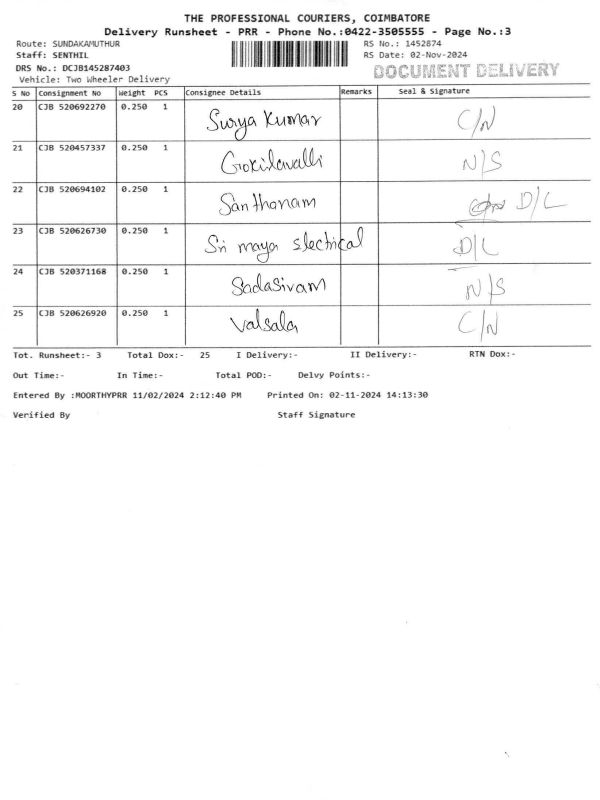 THE PROFESSIONAL COURIERS, COIMBATORE
Delivery Runsheet - PRR - Phone No.:0422-3505555 - Page No.:3
Route: SUNDAKAMUTHUR RS No.: 1452874
Staff: SENTHIL RS Date: 02-Nov-2024
DRS No.: DCJB145287403 DOCUMENT DELIVERY
Vehicle: Two Wheeler Delivery
S No Consignment No Weight PCS Consignee Details Remarks Seal & Signature
20 CJB 520692270 0.250 1 Surya Kumar C/N
21 CJB 520457337 0.250 1 Gokilavalli N/S
22 CJB 520694102 0.250 1 Santhanam D/L
23 CJB 520626730 0.250 1 Sri maya slectrical D/L
24 CJB 520371168 0.250 1 Sadasivam N/S
25 CJB 520626920 0.250 1 Valsala C/N
Tot. Runsheet:- 3 Total Dox:- 25 I Delivery:- II Delivery:- RTN Dox:-
Out Time:- In Time:- Total POD:- Delvy Points:-
Entered By :MOORTHYPRR 11/02/2024 2:12:40 PM Printed On: 02-11-2024 14:13:30
Verified By Staff Signature